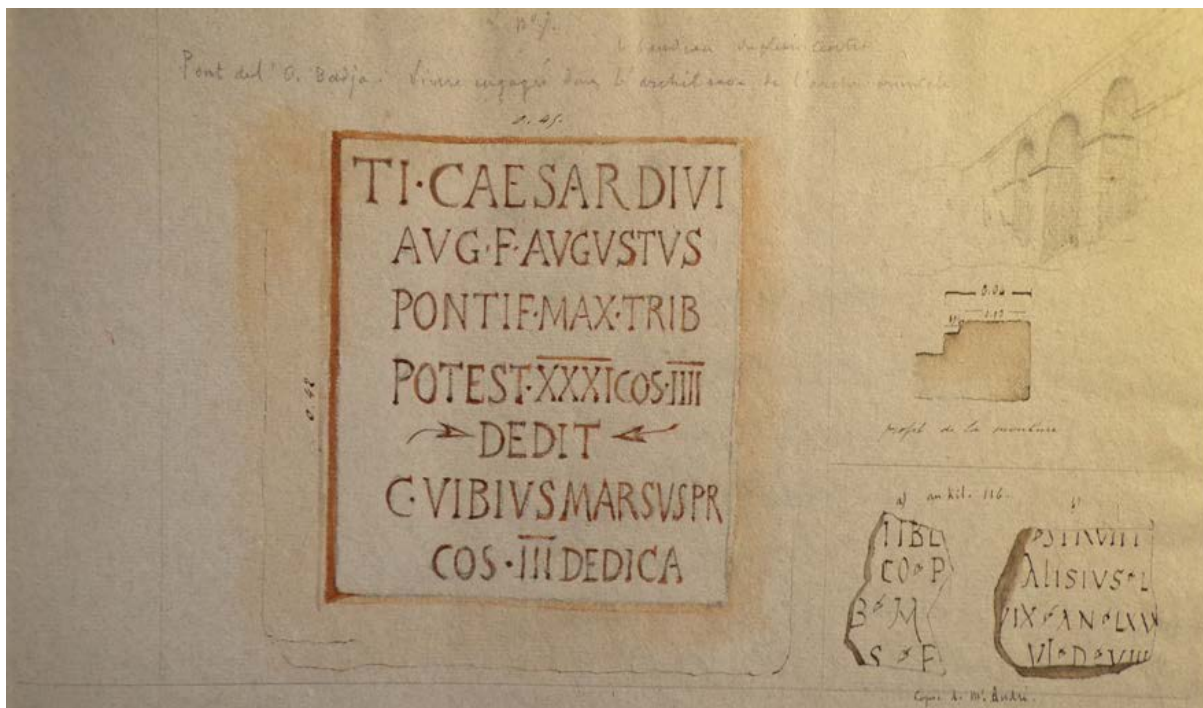 N° 7.
le bandeau du plein cintre
Pont de l'O. Badja. Pierre engagée dans l'architrave de l'arche orientale
0.45.
TI·CAESAR DIVI
AVG·F·AVGVSTVS
PONTIF·MAX·TRIB
POTEST·XXXI COS·IIII
DEDIT
C·VIBIVS MARSVS PR
COS·III DEDICA
0.48
0.04
0.17
profil de la moulure
a) au kil. 116.
ITBL
CO P
B M
S F
OSTRVIII
ALISIVS L
VIX AN LXX
VI D VIII
Copie de Mr. André.